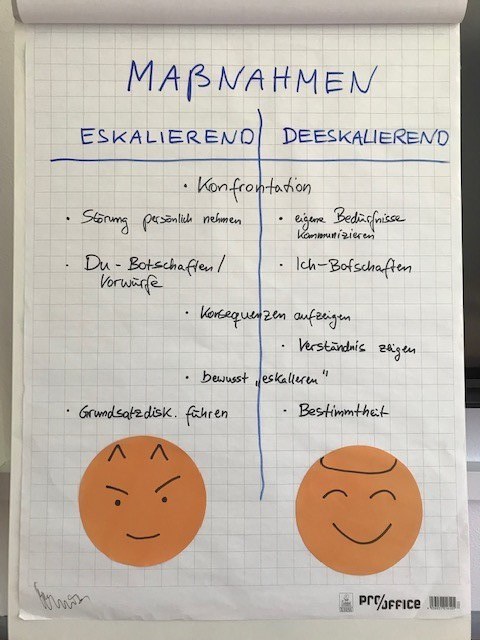 MAßNAHMEN
ESKALIEREND DEESKALIEREND
• Konfrontation
• Störung persönlich nehmen
• eigene Bedürfnisse
kommunizieren
• Du-Botschaften/
Vorwürfe
• Ich-Botschaften
• Konsequenzen aufzeigen
• Verständnis zeigen
• bewusst „eskalieren"
• Grundsatzdisk. führen
• Bestimmtheit
PRO/OFFICE